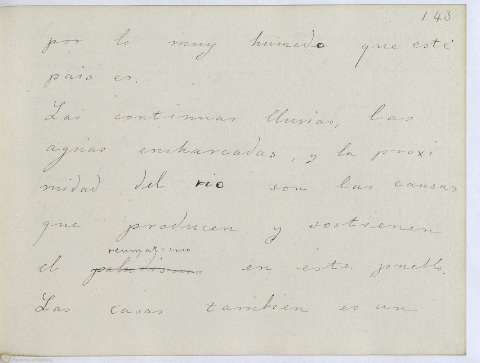 143
por lo muy humedo que este
pais es.
Las continuas lluvias, las
aguas encharcadas, y la proxi
midad del rio son las causas
que producen y sostienen
reumatismo
el paludismo en este pueblo.
Las casas tambien es un